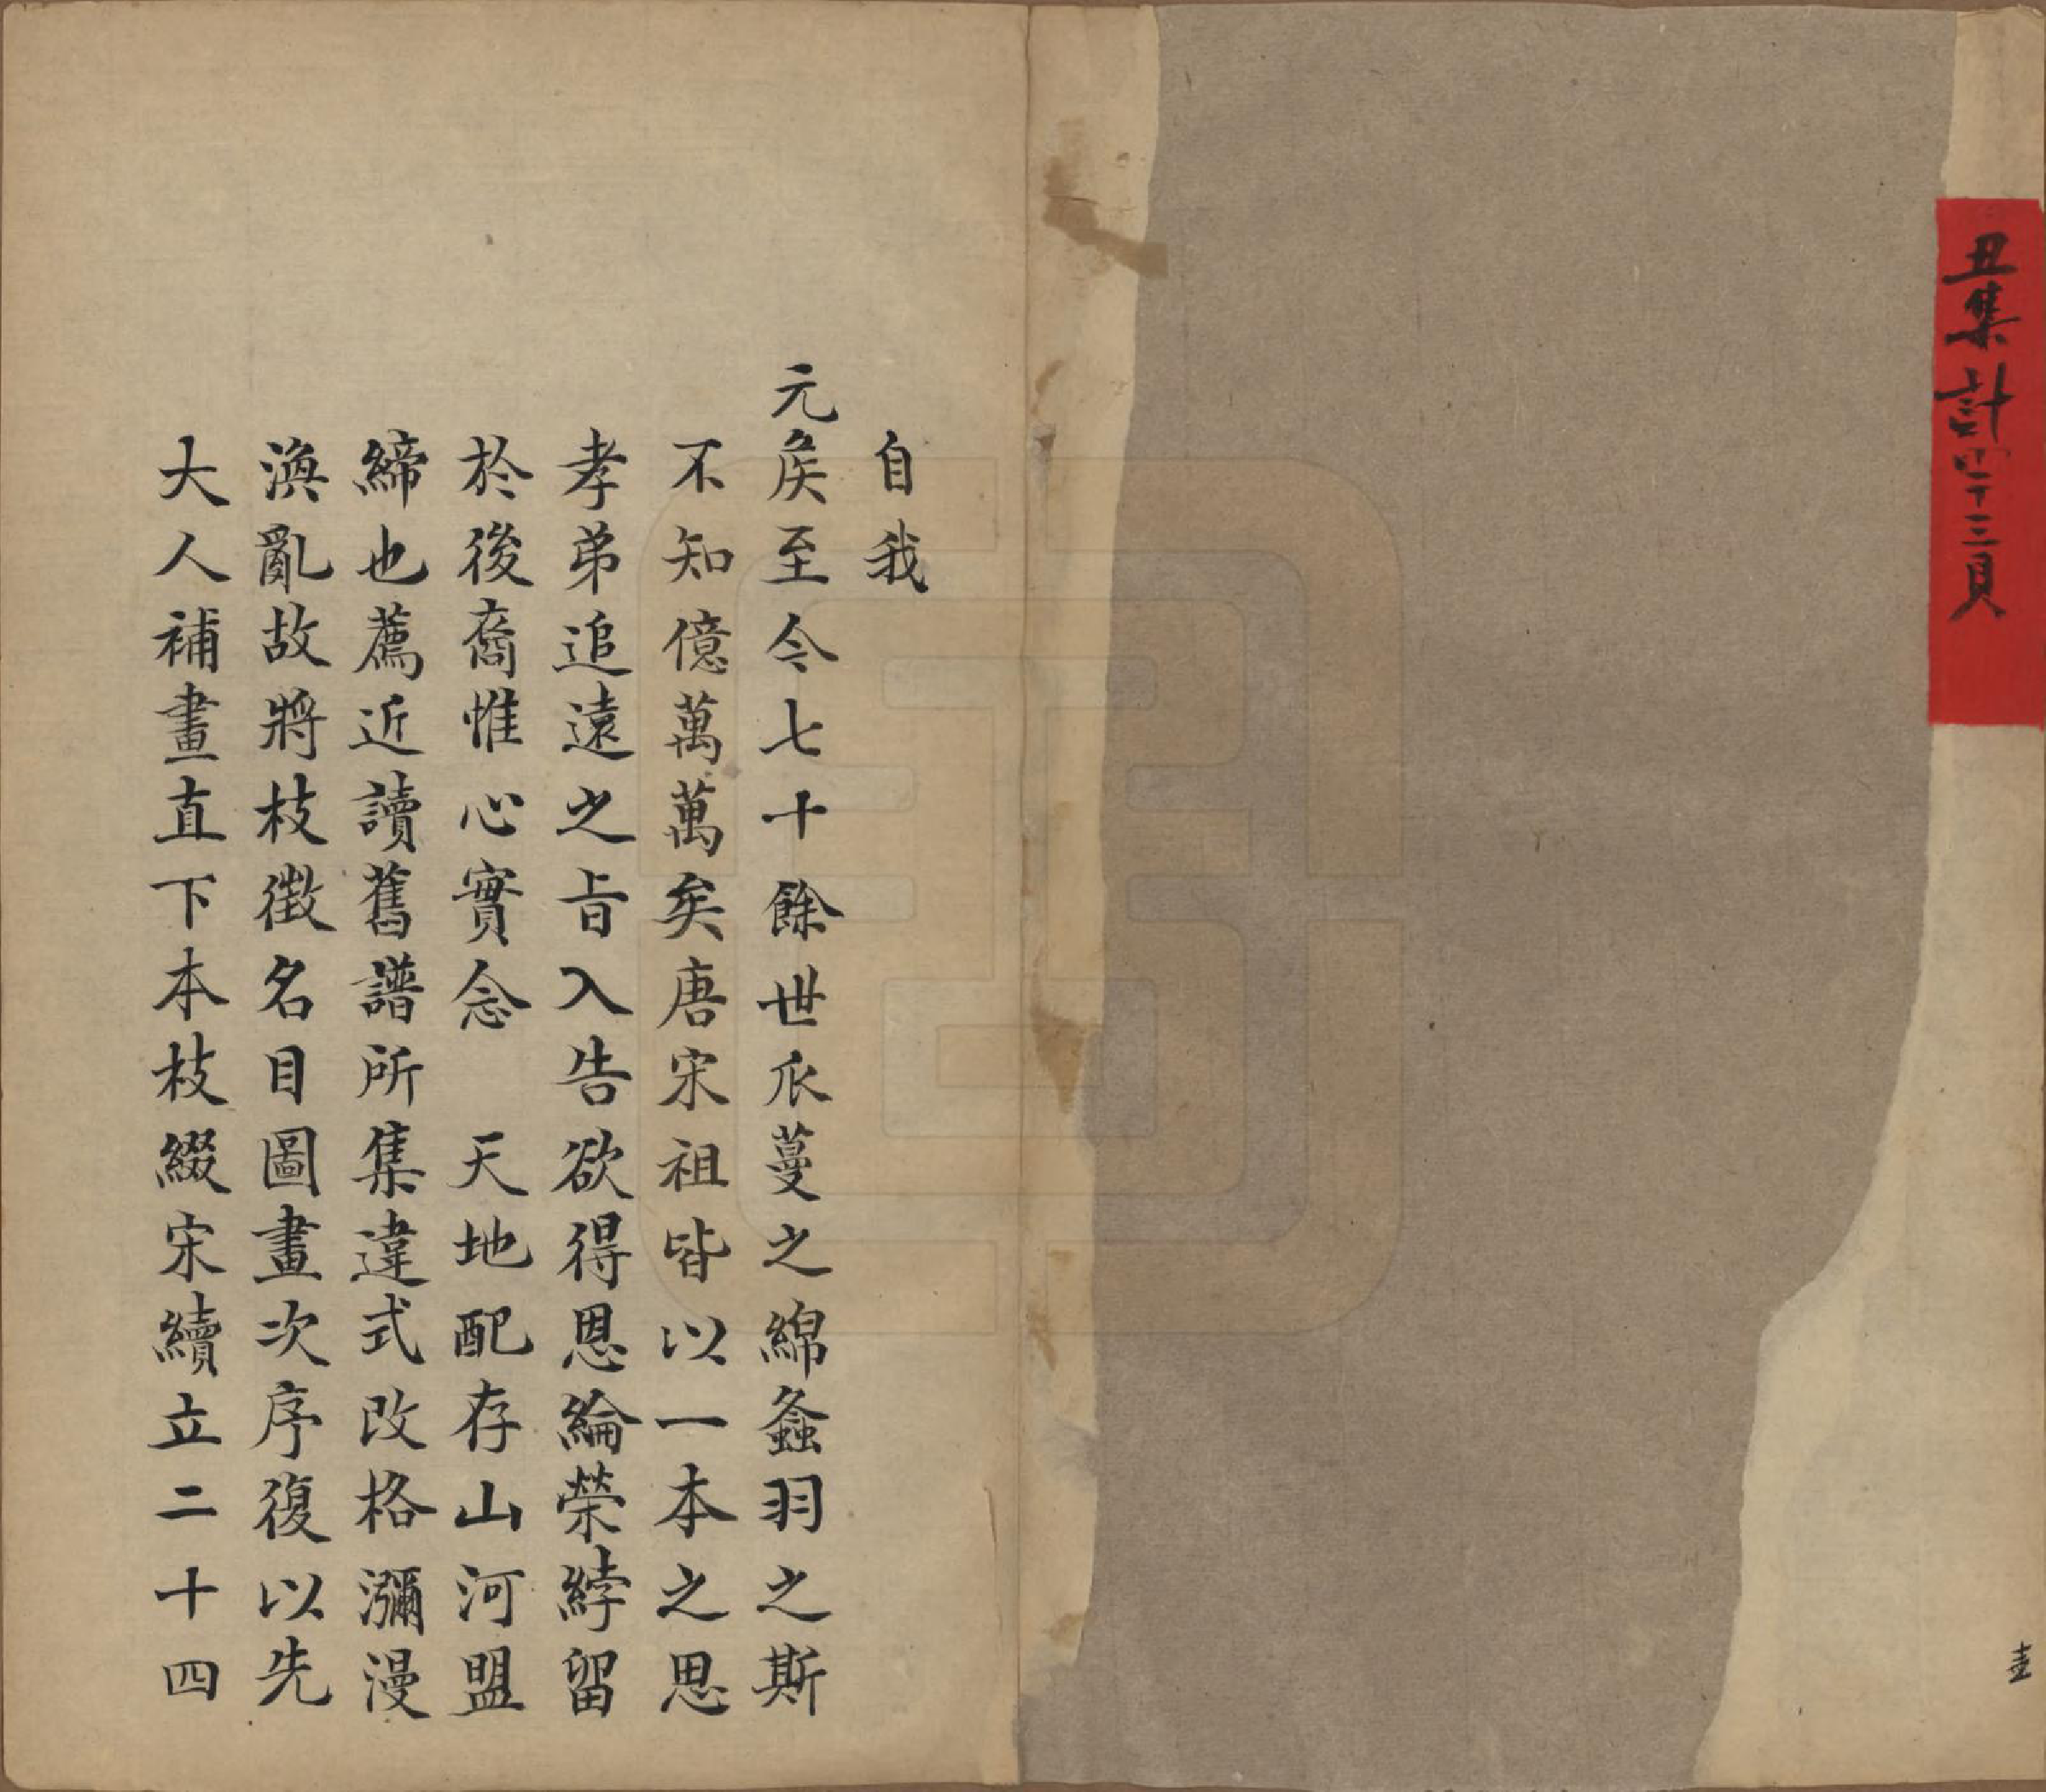 丑集計四十三頁
自我
元矦至今七十餘世瓜蔓之綿螽羽之斯
不知億萬萬矣唐宋祖皆以一本之思
孝弟追遠之旨入告欲得恩綸榮綍留
於後裔惟心實念 天地配存山河盟
締也薦近讀舊譜所集違式改格瀰漫
渙亂故將枝徵名目圖畫次序復以先
大人補畫直下本枝綴宋續立二十四